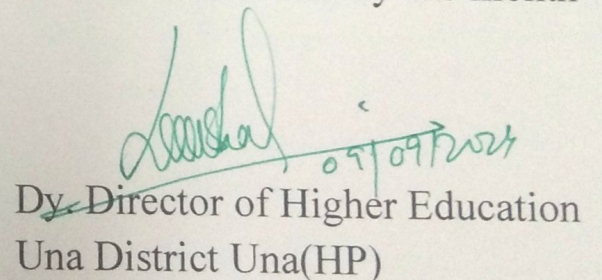 09/09/2024
Dy. Director of Higher Education
Una District Una(HP)